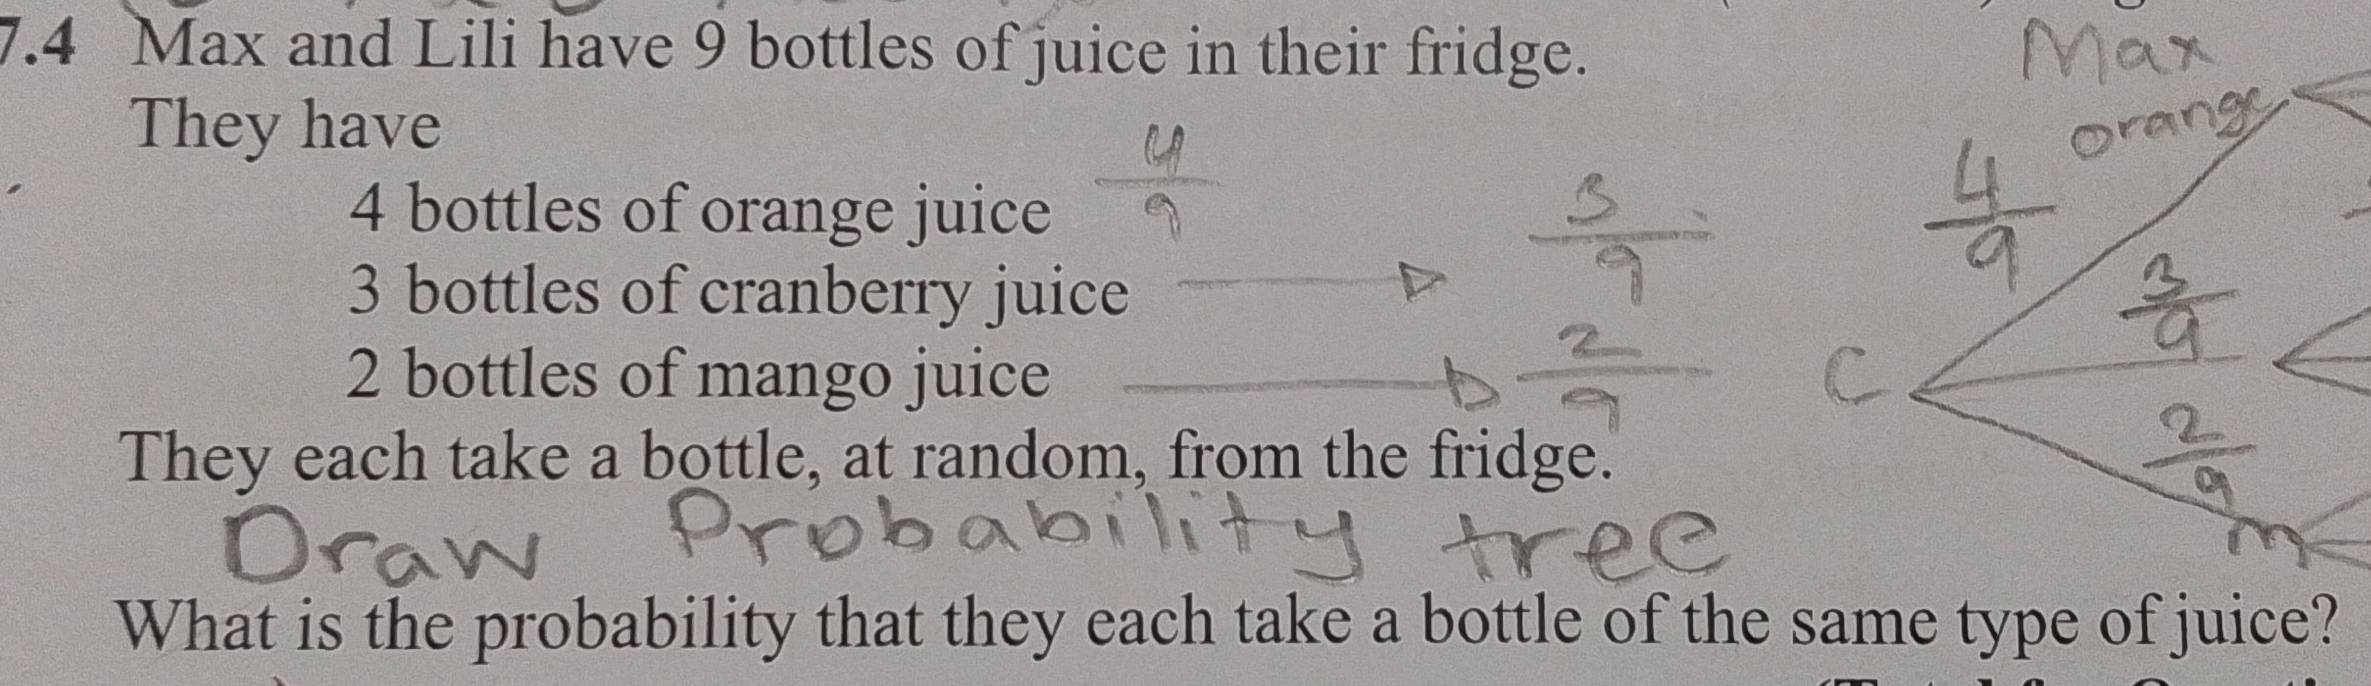 7.4 Max and Lili have 9 bottles of juice in their fridge.
Max
They have
orange
4 bottles of orange juice 4/9
4/9
3 bottles of cranberry juice 3/9
3/9
2 bottles of mango juice 2/9
C
They each take a bottle, at random, from the fridge.
2/9
m
Draw Probability tree
What is the probability that they each take a bottle of the same type of juice?